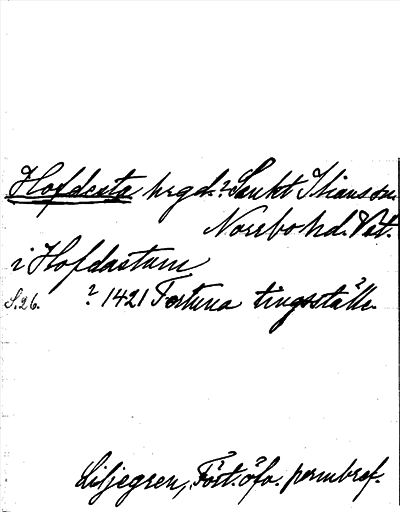 Hofdesta hrgd.? Sankt Ilians sn.
Norrbo hd. Vst.
i Hofdastum
S. 26. ? 1421 Fortuna tingsställe
Liljegren, Fört. öfv. permbref.